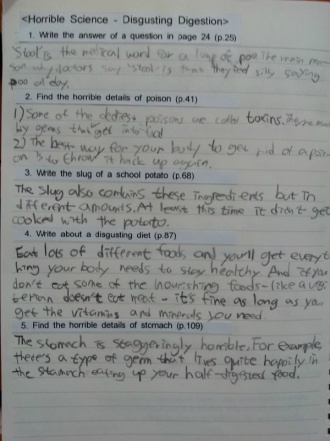 <Horrible Science - Disgusting Digestion>
1. Write the answer of a question in page 24 (p.25)
'Stool' is the medical word for a lump of poo. The main
why doctors say 'stool' is that they feel silly saying
poo all day.
2. Find the horrible details of poison (p.41)
1) Some of the deadliest poisons are called toxins. They're made
by germs that get into food
2) The best way for your body to get rid of a pois
on is to throw it back up again.
3. Write the slug of a school potato (p.68)
The slug also contains these ingredients but in
different amounts. At least this time it didn't get
cooked with the potato.
4. Write about a disgusting diet (p.87)
Eat lots of different foods and you'll get everyt
hing your body needs to stay healthy. And if you
don't eat some of the nourishing foods - like a vege
terian doesn't eat meat - it's fine as long as you
get the vitamins and minerals you need.
5. Find the horrible details of stomach (p.109)
The stomach is staggeringly horrible. For example,
there's a type of germ that lives quite happily in
the stamach eating up your half-digested food.